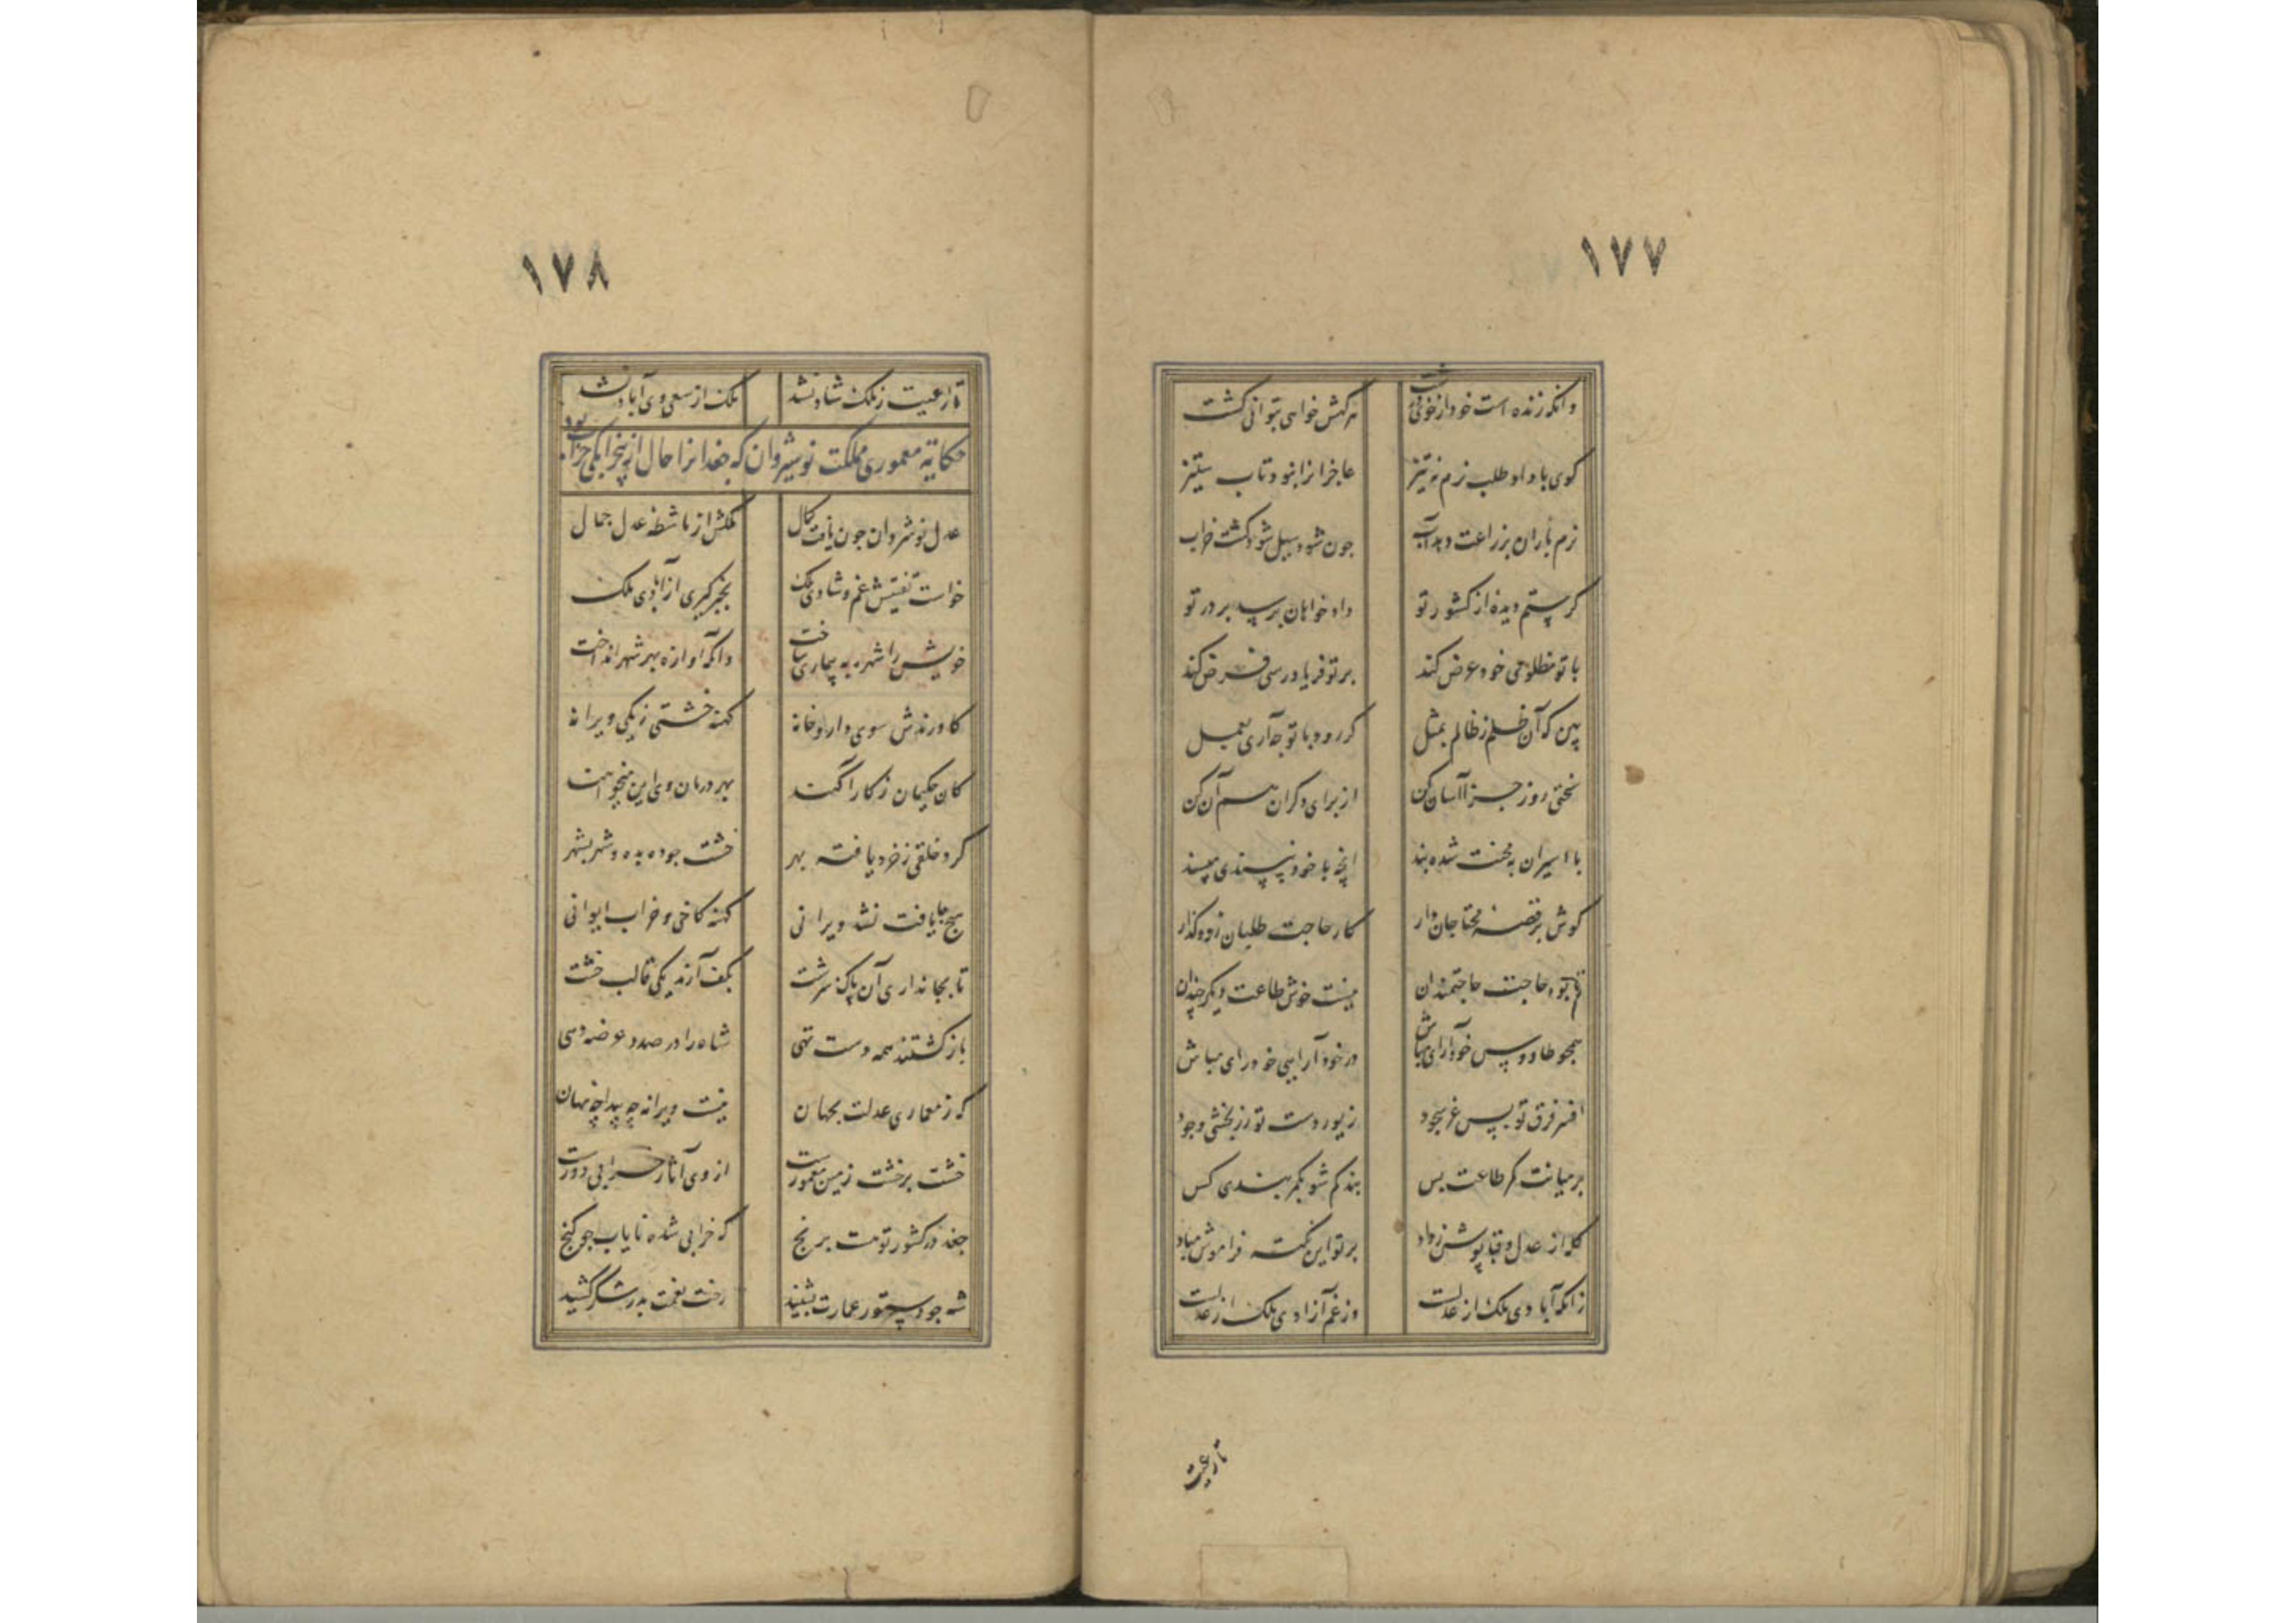 ١٧٧
وانکه زنده است خود از خوی
هر کهش خواهی بتوانی کشت
کوی با داد طلب نرم نه تیز
عاجزانرا نبود تاب ستیز
نرم باران بزراعت دهد آب
چون شود سیل شود کشت خراب
کر ستم دیده از کشور تو
داد خواهان برسد بر در تو
با تو مظلومی خود عرض کند
بر تو فریاد رسی فرض کند
بین که آن ظلم ز ظالم بمثل
کر رود با تو چه آری بعمل
سختی روز جزا آسان کن
از برای دکران هم آن کن
با اسیران به محنت شده بند
انچه با خود نپسندی مپسند
کوش بر قصه محتاجان دار
کار حاجت طلبان زود کذار
تا بود حاجت حاجتمندان
نیست خوش طاعت دیکر چندان
همچو طاووس خودآرای مباش
در خودآرایی خودرای مباش
افسر فرق تو بس غر سجود
زیور دست تو زر بخشی وجود
بر میانت کمر طاعت بس
بند کم شو بکمر بندی کس
کله از عدل و قبا پوش ز داد
بر تو این نکته فراموش مباد
زانکه آبادی ملک از عدلست
وز غم آزادی ملک از عدلست
تا رعیت
١٧٨
تا رعیت ز ملک شاد نشد
ملک از سعی وی آباد نشد
حکایت معموری مملکت نوشیروان که جغدانرا حال از بیخرابکی خراب بود
عدل نوشروان چون یافت کمال
ملکش از ماشطه عدل جمال
خواست تفتیش غم و شادی ملک
بخبر کیری از آبادی ملک
خویش را شهره به بیماری ساخت
وانکه آوازه بهر شهر انداخت
کاورندش سوی داروخانه
کهنه خشتی ز یکی ویرانه
کان حکیمان ز کار آکهند
بهر درمان وی این میخواهند
کرد خلقی ز خرد یافته بهر
خشت جو ده بده و شهر بشهر
هیچ جا یافت نشد ویرانی
کهنه کاخی و خراب ایوانی
تا بجانداری آن پاک سرشت
بکف آرند یکی قالب خشت
باز کشتند همه دست تهی
شاه را در صدد عرضه دهی
که ز معماری عدلت بجهان
نیست ویرانه چه پیدا چه نهان
خشت بر خشت زمین معمورست
از وی آثار خرابی دورست
جغد در کشور توست برنج
که خرابی شده نایاب چو کنج
شه چو دستور عمارت بشنید
رخت نعمت بدر شکر کشید